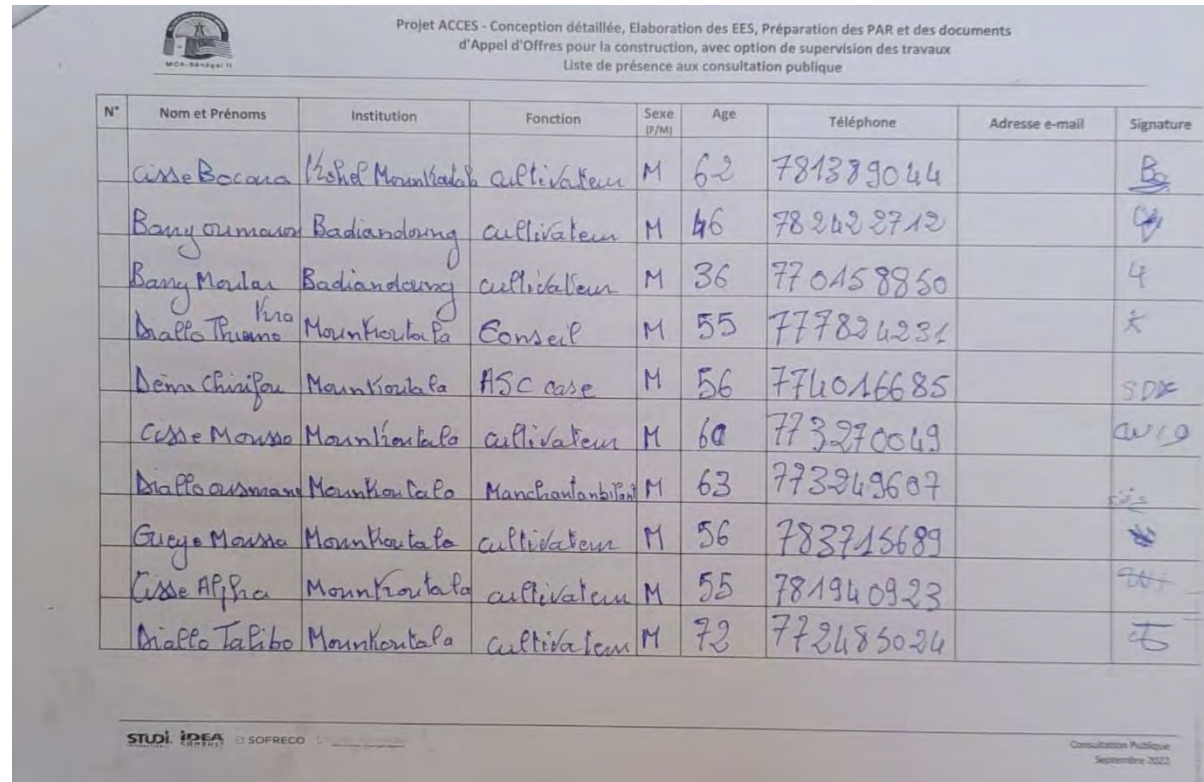 MCA-Sénégal II
Projet ACCES - Conception détaillée, Elaboration des EES, Préparation des PAR et des documents
d'Appel d'Offres pour la construction, avec option de supervision des travaux
Liste de présence aux consultation publique
N° Nom et Prénoms Institution Fonction Sexe (F/M) Age Téléphone Adresse e-mail Signature
Cisse Bocara cultivateur M 62 781389044
Barry oumarou Badiandoung cultivateur M 46 782422712
Barry Badiandoung cultivateur M 36 770158850
Diallo Thierno Mounkoutala Conseil M 55 777824231
Chirifou Mounkoutala ASC case M 56 774016685
Cisse Moussa Mounkoutala cultivateur M 60 773270049
Diallo ousmane Mounkoutala M 63 773249607
Gueye Moussa Mounkoutala cultivateur M 56 783715689
Cisse Alpha Mounkoutala cultivateur M 55 781940923
Diallo Talibo Mounkoutala cultivateur M 72 772485024
STUDI IDEA CONSULT et SOFRECO
Consultation Publique
Septembre 2022